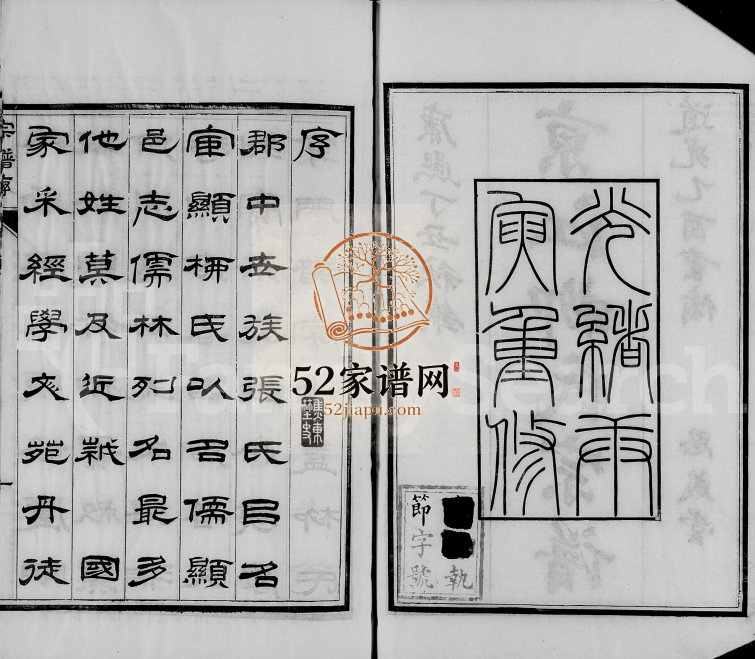 光緒庚
寅重修
執
節字號
52家谱网
52jiapu.com
序
郡中世族張氏㠯名
宦顯桺氏以名儒顯
邑志儒林列名最多
他姓莫及近國
家采經學文苑丹徒
宗譜序